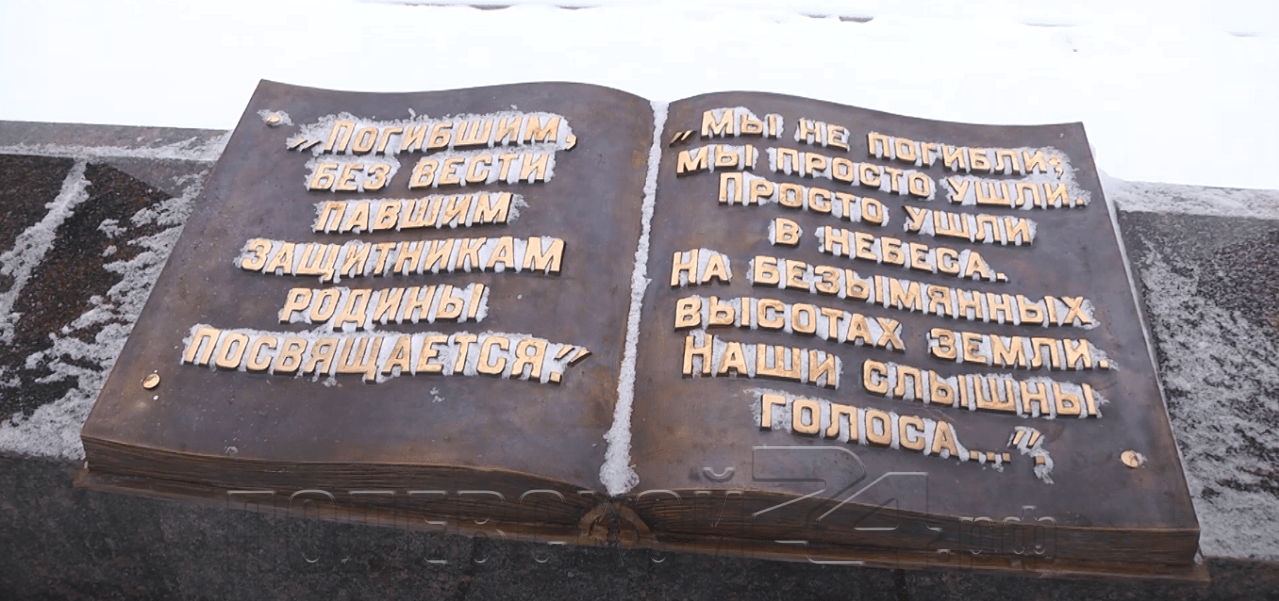 „Погибшим,
без вести
павшим
защитникам
Родины
посвящается.”
„Мы не погибли;
мы просто ушли.
Просто ушли
в небеса.
На безымянных
высотах земли.
Наши слышны
голоса...”.
ПОЛЕВСКОЙ 24.рф